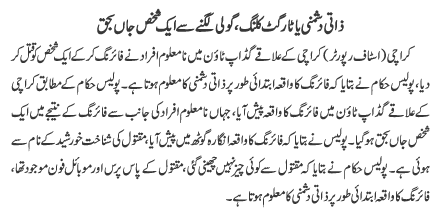 ذاتی دشمنی یا ٹارگٹ کلنگ، گولی لگنے سے ایک شخص جاں بحق
کراچی (اسٹاف رپورٹر) کراچی کے علاقے گڈاپ ٹاؤن میں نامعلوم افراد نے فائرنگ کر کے ایک شخص کو قتل کر
دیا، پولیس حکام نے بتایا کہ فائرنگ کا واقعہ ابتدائی طور پر ذاتی دشمنی کا معلوم ہوتا ہے۔ پولیس حکام کے مطابق کراچی
کے علاقے گڈاپ ٹاؤن میں فائرنگ کا واقعہ پیش آیا، جہاں نامعلوم افراد کی جانب سے فائرنگ کے نتیجے میں ایک شخص
جاں بحق ہو گیا۔ پولیس نے بتایا کہ فائرنگ کا واقعہ انگارہ گوٹھ میں پیش آیا، مقتول کی شناخت خورشید کے نام سے
ہوئی ہے۔ پولیس حکام نے بتایا کہ مقتول سے کوئی چیز نہیں چھینی گئی، مقتول کے پاس پرس اور موبائل فون موجود تھا،
فائرنگ کا واقعہ ابتدائی طور پر ذاتی دشمنی کا معلوم ہوتا ہے۔